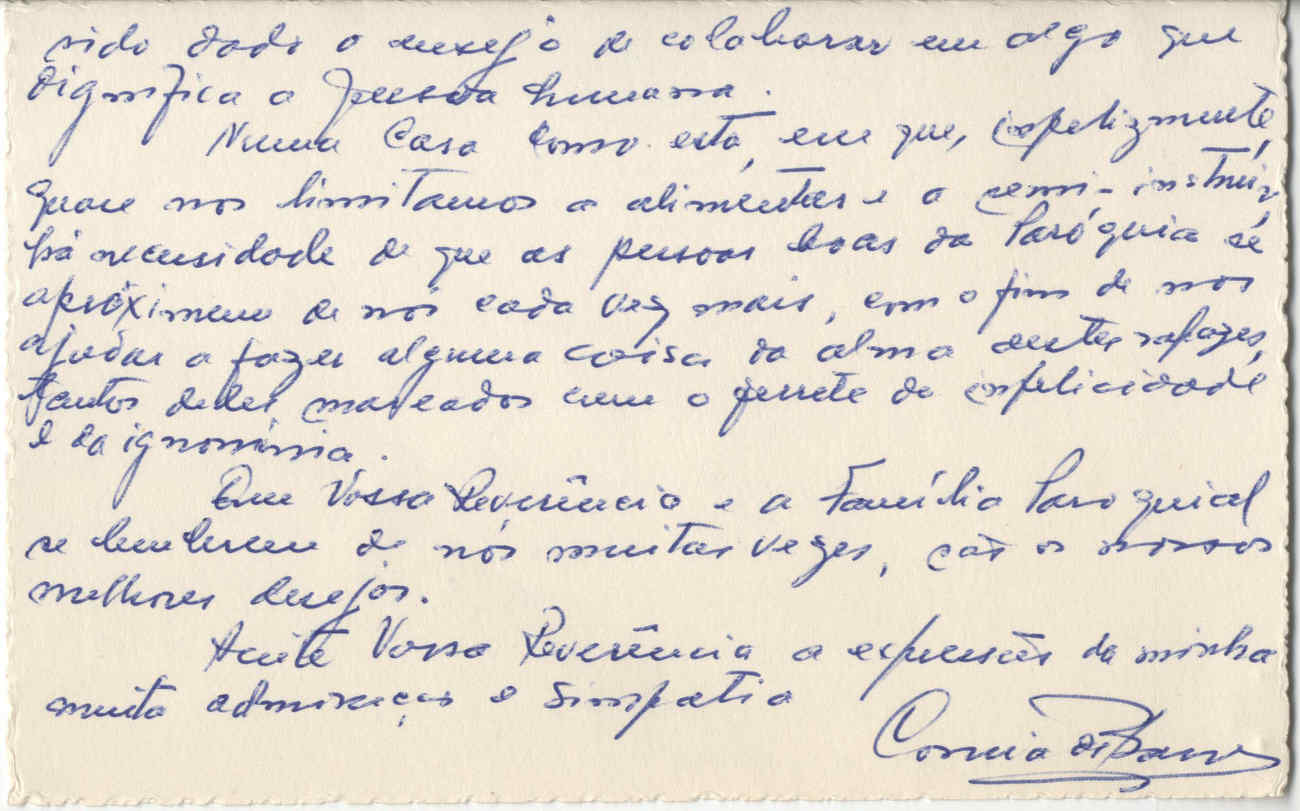 sido dado o ensejo de colaborar em algo que
dignifica a pessoa humana.
Numa Casa como esta, em que, infelizmente,
quase nos limitamos a alimentar e a semi-instruir,
há necessidade de que as pessoas boas da Paróquia se
apróximem de nós cada vez mais, com o fim de nos
ajudar a fazer alguma coisa da alma destes rapazes,
tantos deles marcados com o ferrete da infelicidade
e da ignomínia.
Que Vossa Reverência e a Família Paroquial
se lembrem de nós muitas vezes, são os nossos
melhores desejos.
Aceite Vossa Reverência a expressão da minha
muita admiração e simpatia
Correia de Barros